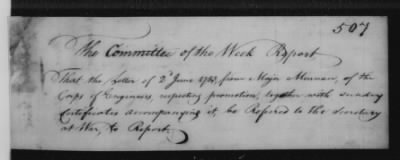 507
The Committee of the Week Report
That the Letter of 2d June 1783, from Major Murnan, of the
Corps of Engineers, respecting promotion, together with sundry
Certificates accompanying it, be Refered to the Secretary
at War, to Report.